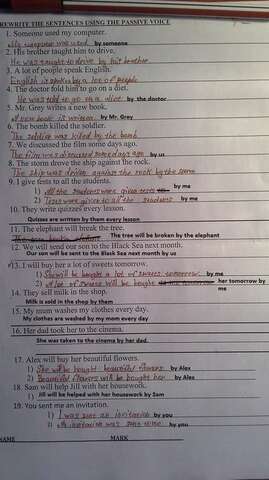 REWRITE SENTENCES USING THE PASSIVE VOICE
1. Someone used my computer.
My computer was used by someone
2. His brother taught him to drive.
He was taught to drive by his brother
3. A lot of people speak English.
English is spoken by a lot of people
4. The doctor told him to go on a diet.
He was told to go on a diet by the doctor
5. Mr. Grey writes a new book.
A new book is written by Mr. Grey
6. The bomb killed the soldier.
The soldier was killed by the bomb
7. We discussed the film some days ago.
The film was discussed some days ago by us
8. The storm drove the ship against the rock.
The ship was driven against the rock by the storm
9. I give tests to all the students.
1) All the students were given tests by me
2) Tests were given to all the students by me
10. They write quizzes every lesson.
Quizes are written by them every lesson
11. The elephant will break the tree.
The tree will be broken by the elephant
12. We will send our son to the Black Sea next month.
Our son will be sent to the Black Sea next month by us
13. I will buy her a lot of sweets tomorrow.
1) She will be bought a lot of sweets tomorrow by me
2) A lot of sweets will be bought her tomorrow by
me
14. They sell milk in the shop.
Milk is sold in the shop by them
15. My mum washes my clothes every day.
My clothes are washed by my mom every day
16. Her dad took her to the cinema.
She was taken to the cinema by her dad.
17. Alex will buy her beautiful flowers.
1) She will be bought beautiful flowers by Alex
2) Beautiful flowers will be bought her by Alex
18. Sam will help Jill with her housework.
1) Jill will be helped with her housework by Sam
19. You sent me an invitation.
1) I was sent an invitation by you
2) An invitation was sent by you
NAME MARK